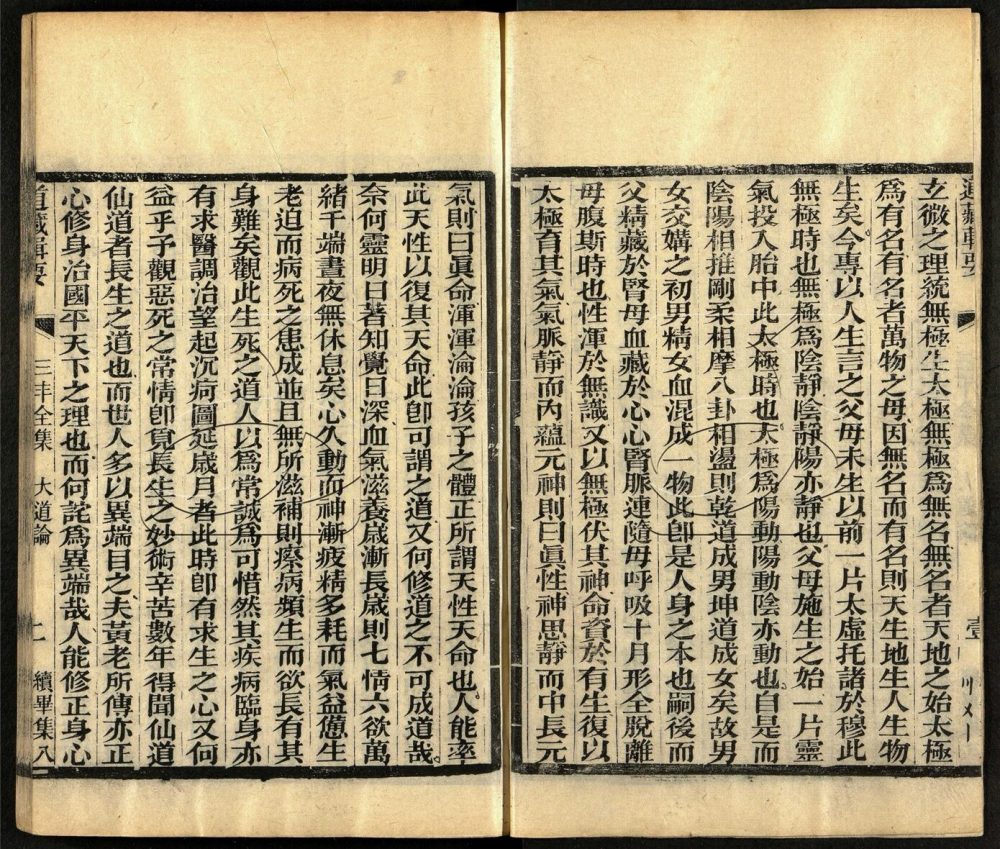 道藏輯要
壹
玄微之理統無極生太極無極爲無名無名者天地之始太極
爲有名有名者萬物之母因無名而有名則天生地生人生物
生矣今專以人生言之父母未生以前一片太虛托諸於穆此
無極時也無極爲陰靜陰靜陽亦靜也父母施生之始一片靈
氣投入胎中此太極時也太極爲陽動陽動陰亦動也自是而
陰陽相推剛柔相摩八卦相盪則乾道成男坤道成女矣故男
女交媾之初男精女血混成一物此卽是人身之本也嗣後而
父精藏於腎母血藏於心心腎脈連隨母呼吸十月形全脫離
母腹斯時也性渾於無識又以無極伏其神命資於有生復以
太極育其氣氣脈靜而內蘊元神則曰眞性神思靜而中長元
氣則曰眞命渾渾淪淪孩子之體正所謂天性天命也人能率
此天性以復其天命此卽可謂之道又何修道之不可成道哉
奈何靈明日著知覺日深血氣滋養歲漸長歲則七情六欲萬
緒千端晝夜無休息矣心久動而神漸疲精多耗而氣益憊生
老迫而病死之患成並且無所滋補則瘵病頻生而欲長有其
身難矣觀此生死之道人以爲常誠爲可惜然其疾病臨身亦
有求醫調治望起沉疴圖延歲月者此時卽有求生之心又何
益乎予觀惡死之常情卽覓長生之妙術辛苦數年得聞仙道
仙道者長生之道也而世人多以異端目之夫黃老所傳亦正
心修身治國平天下之理也而何詫爲異端哉人能修正身心
道藏輯要
三丰全集 大道論
二
續畢集八